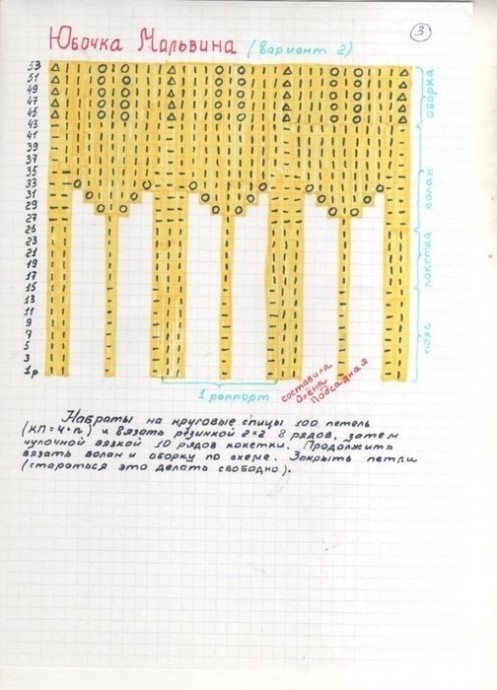 Юбочка Мальвина (вариант 2)
3
53
51
49
47
45
43
41
39
37
35
33
31
29
27
25
23
21
19
17
15
13
11
9
7
5
3
1р
оборка
волан
кокетка
пояс
1 раппорт
составила
Олена
Подсадная
Набраты на круговые спицы 100 петель
(КП=4·n) и вязать резинкой 2×2 8 рядов, затем
чулочной вязкой 10 рядов кокетки. Продолжить
вязать волан и оборку по схеме. Закрыть петли
(стараться это делать свободно).